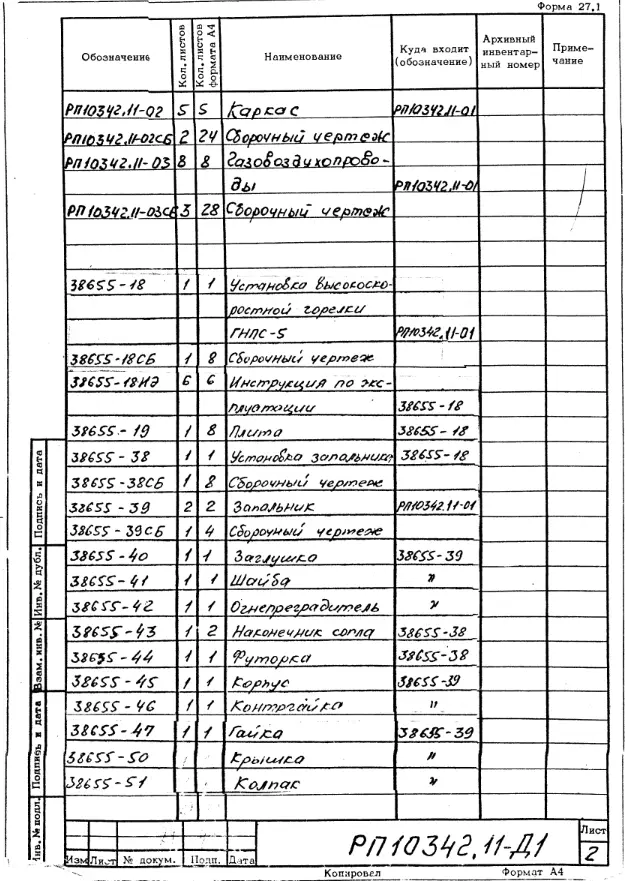 Форма 27.1
Обозначение Кол. листов Кол. листов формата А4 Наименование Куда входит (обозначение) Архивный инвентар- ный номер Приме- чание
РП10342.11-02 5 5 Каркас РП10342.11-01
РП10342.11-02СБ 2 24 Сборочный чертеж
РП10342.11-03 8 8 Газовоздухопрово-
ды РП10342.11-01
РП10342.11-03СБ 3 28 Сборочный чертеж
38655-18 1 1 Установка высокоско-
ростной горелки
ГНПС-5 РП10342.11-01
38655-18СБ 1 8 Сборочный чертеж
38655-18ИЭ 6 6 Инструкция по экс-
плуатации 38655-18
38655-19 1 8 Плита 38655-18
38655-38 1 1 Установка запальника 38655-18
38655-38СБ 1 8 Сборочный чертеж
38655-39 2 2 Запальник РП10342.11-01
38655-39СБ 1 4 Сборочный чертеж
38655-40 1 1 Заглушка 38655-39
38655-41 1 1 Шайба "
38655-42 1 1 Огнепреградитель "
38655-43 1 2 Наконечник сопла 38655-38
38655-44 1 1 Футорка 38655-38
38655-45 1 1 Корпус 38655-39
38655-46 1 1 Контргайка "
38655-47 1 1 Гайка 38655-39
38655-50 Крышка "
38655-51 Колпак "
Подпись и дата
Инв. № дубл.
Взам. инв. №
Подпись и дата
Инв. № подл.
РП10342.11-Д1
Лист
2
Изм Лист № докум. Подп. Дата
Копировал Формат А4